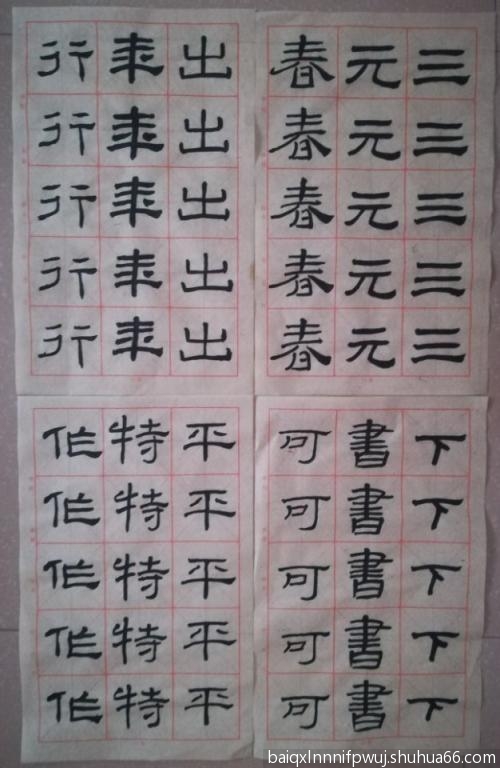 三三三三三
元元元元元
春春春春春
出出出出出
年年年年年
行行行行行
下下下下下
書書書書書
可可可可可
平平平平平
特特特特特
作作作作作
baiqxlnnnifpwuj.shuhua66.com